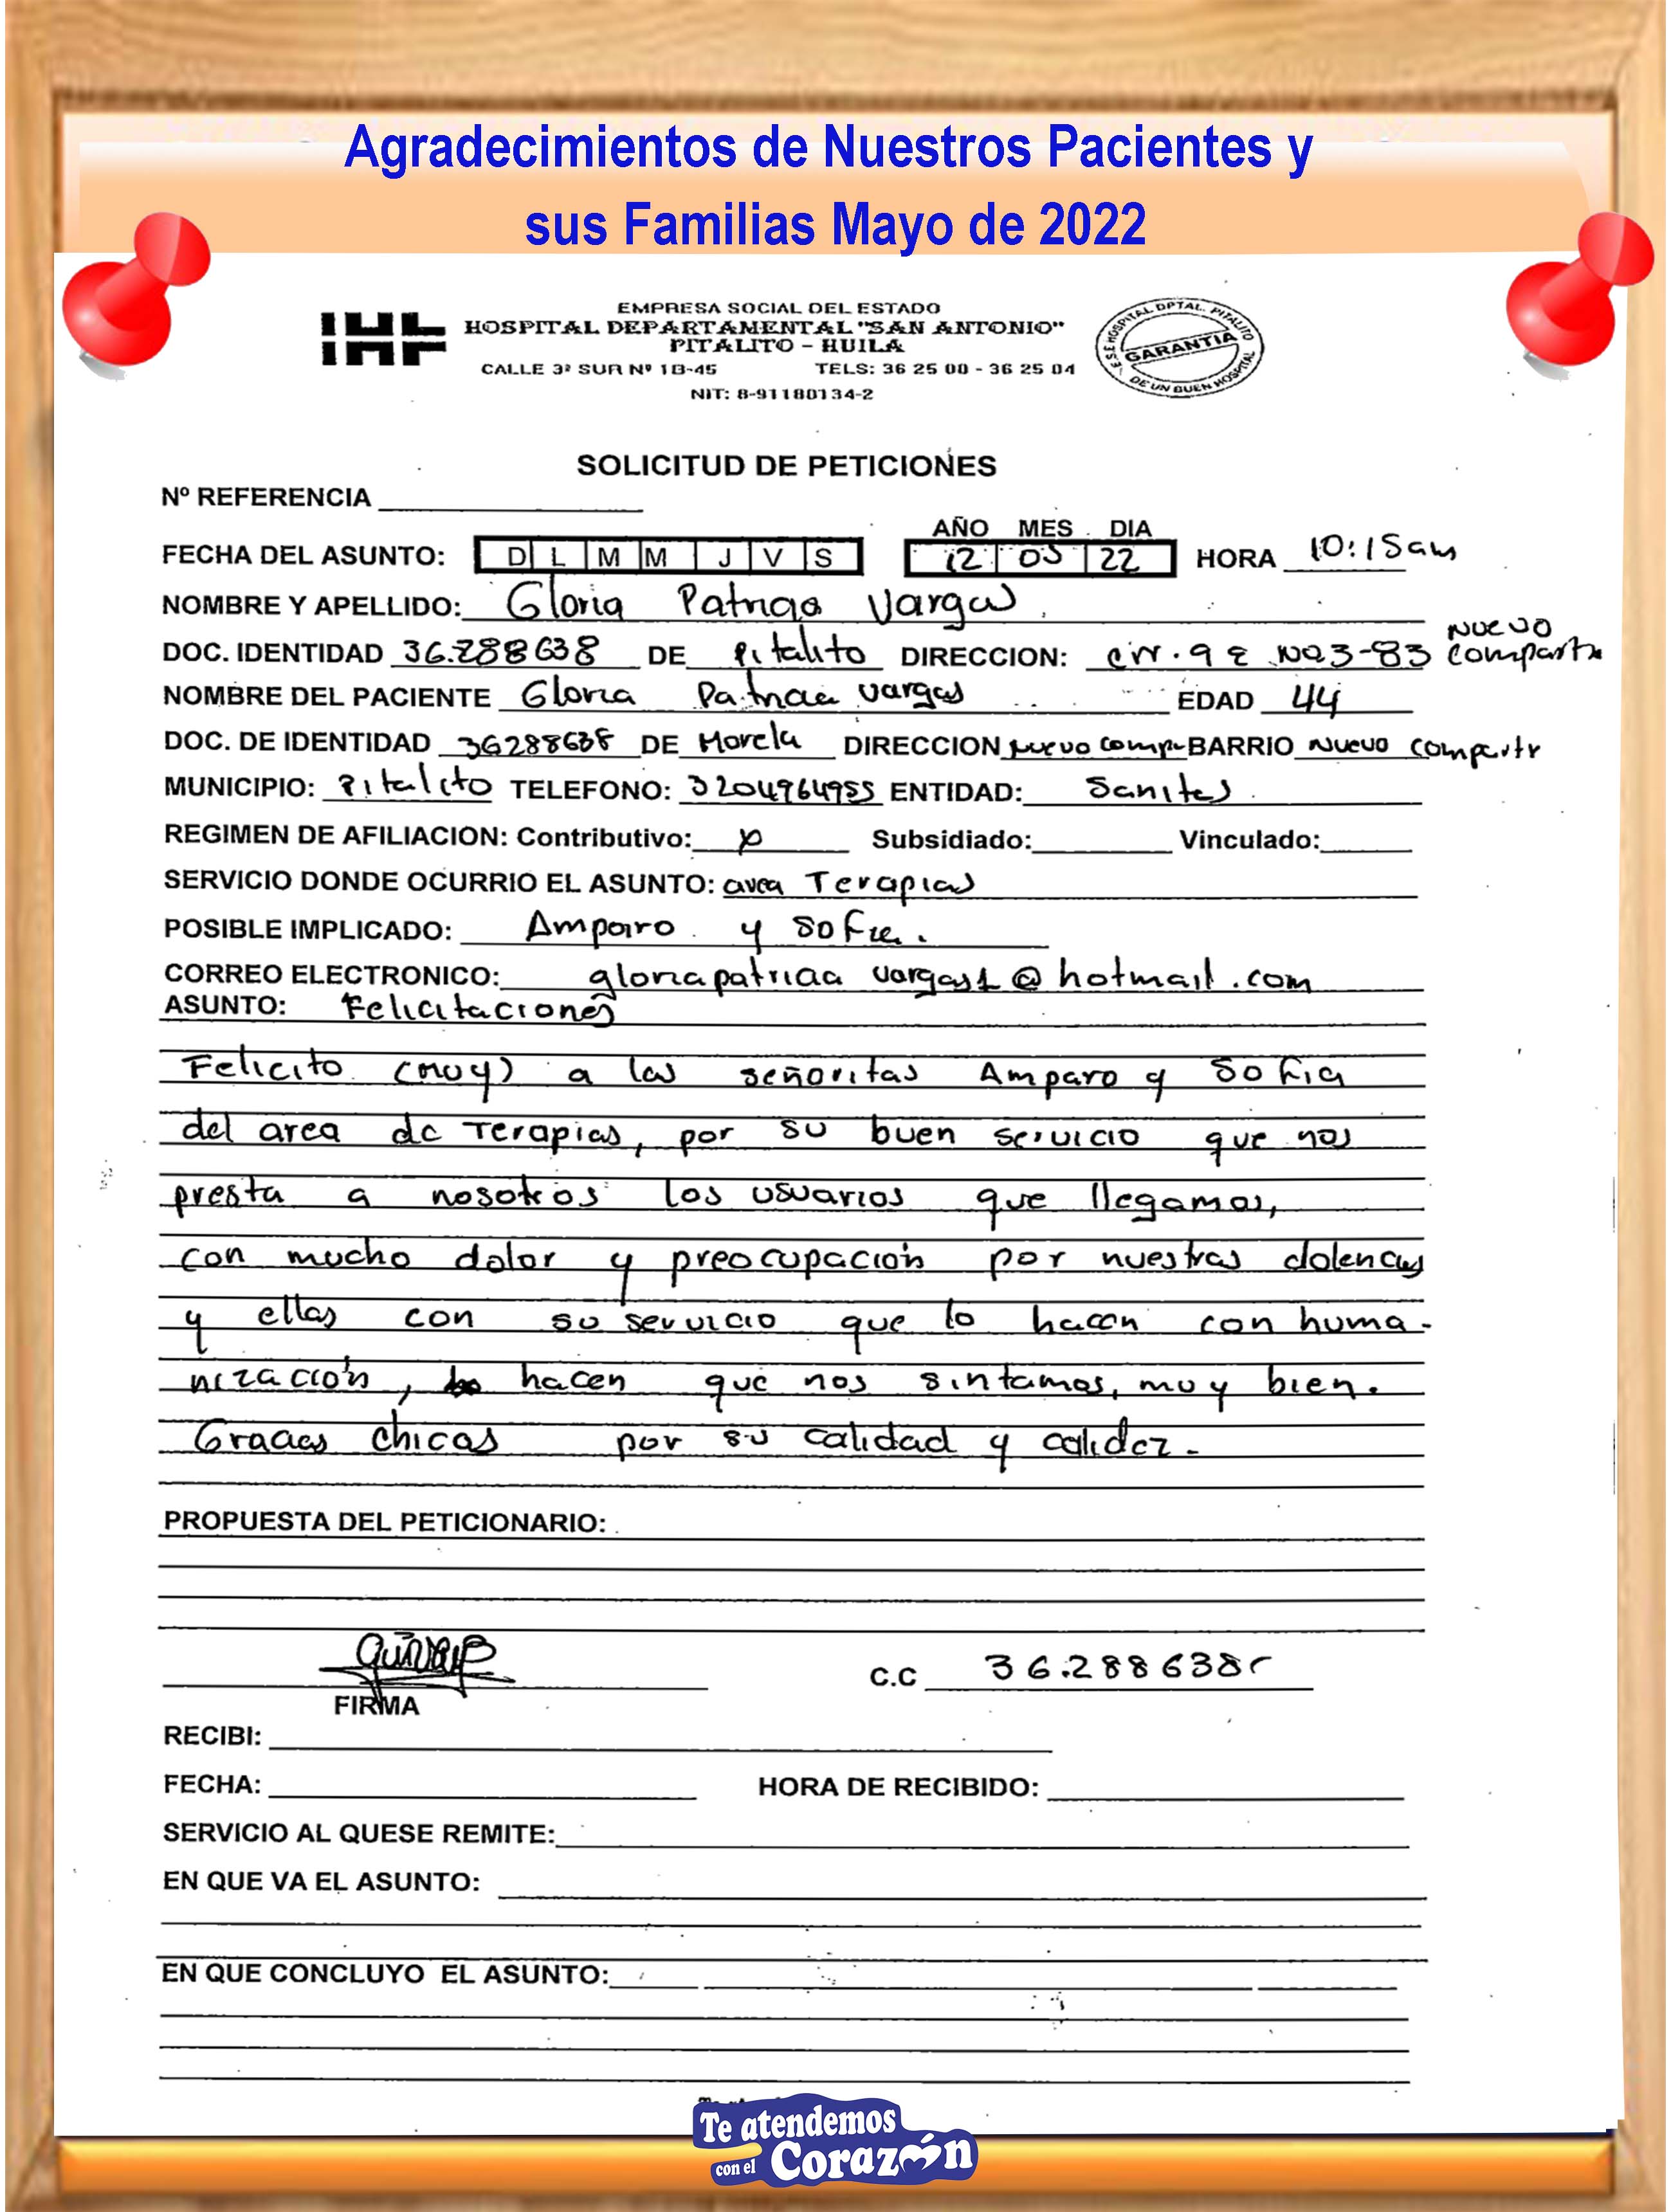 Agradecimientos de Nuestros Pacientes y
sus Familias Mayo de 2022
EMPRESA SOCIAL DEL ESTADO
HOSPITAL DEPARTAMENTAL "SAN ANTONIO"
PITALITO - HUILA
CALLE 3ª SUR Nº 1B-45 TELS: 36 25 00 - 36 25 04
NIT: 8-91180134-2
E.S.E HOSPITAL DPTAL. PITALITO
GARANTIA
DE UN BUEN HOSPITAL
SOLICITUD DE PETICIONES
Nº REFERENCIA
AÑO MES DIA
FECHA DEL ASUNTO: D L M M J V S 12 05 22 HORA 10:15am
NOMBRE Y APELLIDO: Gloria Patricia Vargas
DOC. IDENTIDAD 36.288638 DE Pitalito DIRECCION: crr. 9 E No 3-83 Nuevo Compartir
NOMBRE DEL PACIENTE Gloria Patricia Vargas EDAD 44
DOC. DE IDENTIDAD 36288638 DE Morela DIRECCION Nuevo Comp. BARRIO Nuevo Compartir
MUNICIPIO: Pitalito TELEFONO: 3204964955 ENTIDAD: Sanitas
REGIMEN DE AFILIACION: Contributivo: x Subsidiado: Vinculado:
SERVICIO DONDE OCURRIO EL ASUNTO: area Terapias
POSIBLE IMPLICADO: Amparo y Sofia.
CORREO ELECTRONICO: gloriapatricia vargas1@hotmail.com
ASUNTO: Felicitaciones
Felicito (muy) a las señoritas Amparo y Sofia
del area de Terapias, por su buen servicio que nos
presta a nosotros los usuarios que llegamos,
con mucho dolor y preocupación por nuestras dolencias
y ellas con su servicio que lo hacen con huma-
nización, hacen que nos sintamos, muy bien.
Gracias chicas por su calidad y calidez.
PROPUESTA DEL PETICIONARIO:
C.C 36.288638
FIRMA
RECIBI:
FECHA: HORA DE RECIBIDO:
SERVICIO AL QUESE REMITE:
EN QUE VA EL ASUNTO:
EN QUE CONCLUYO EL ASUNTO:
Te atendemos
con el Corazón